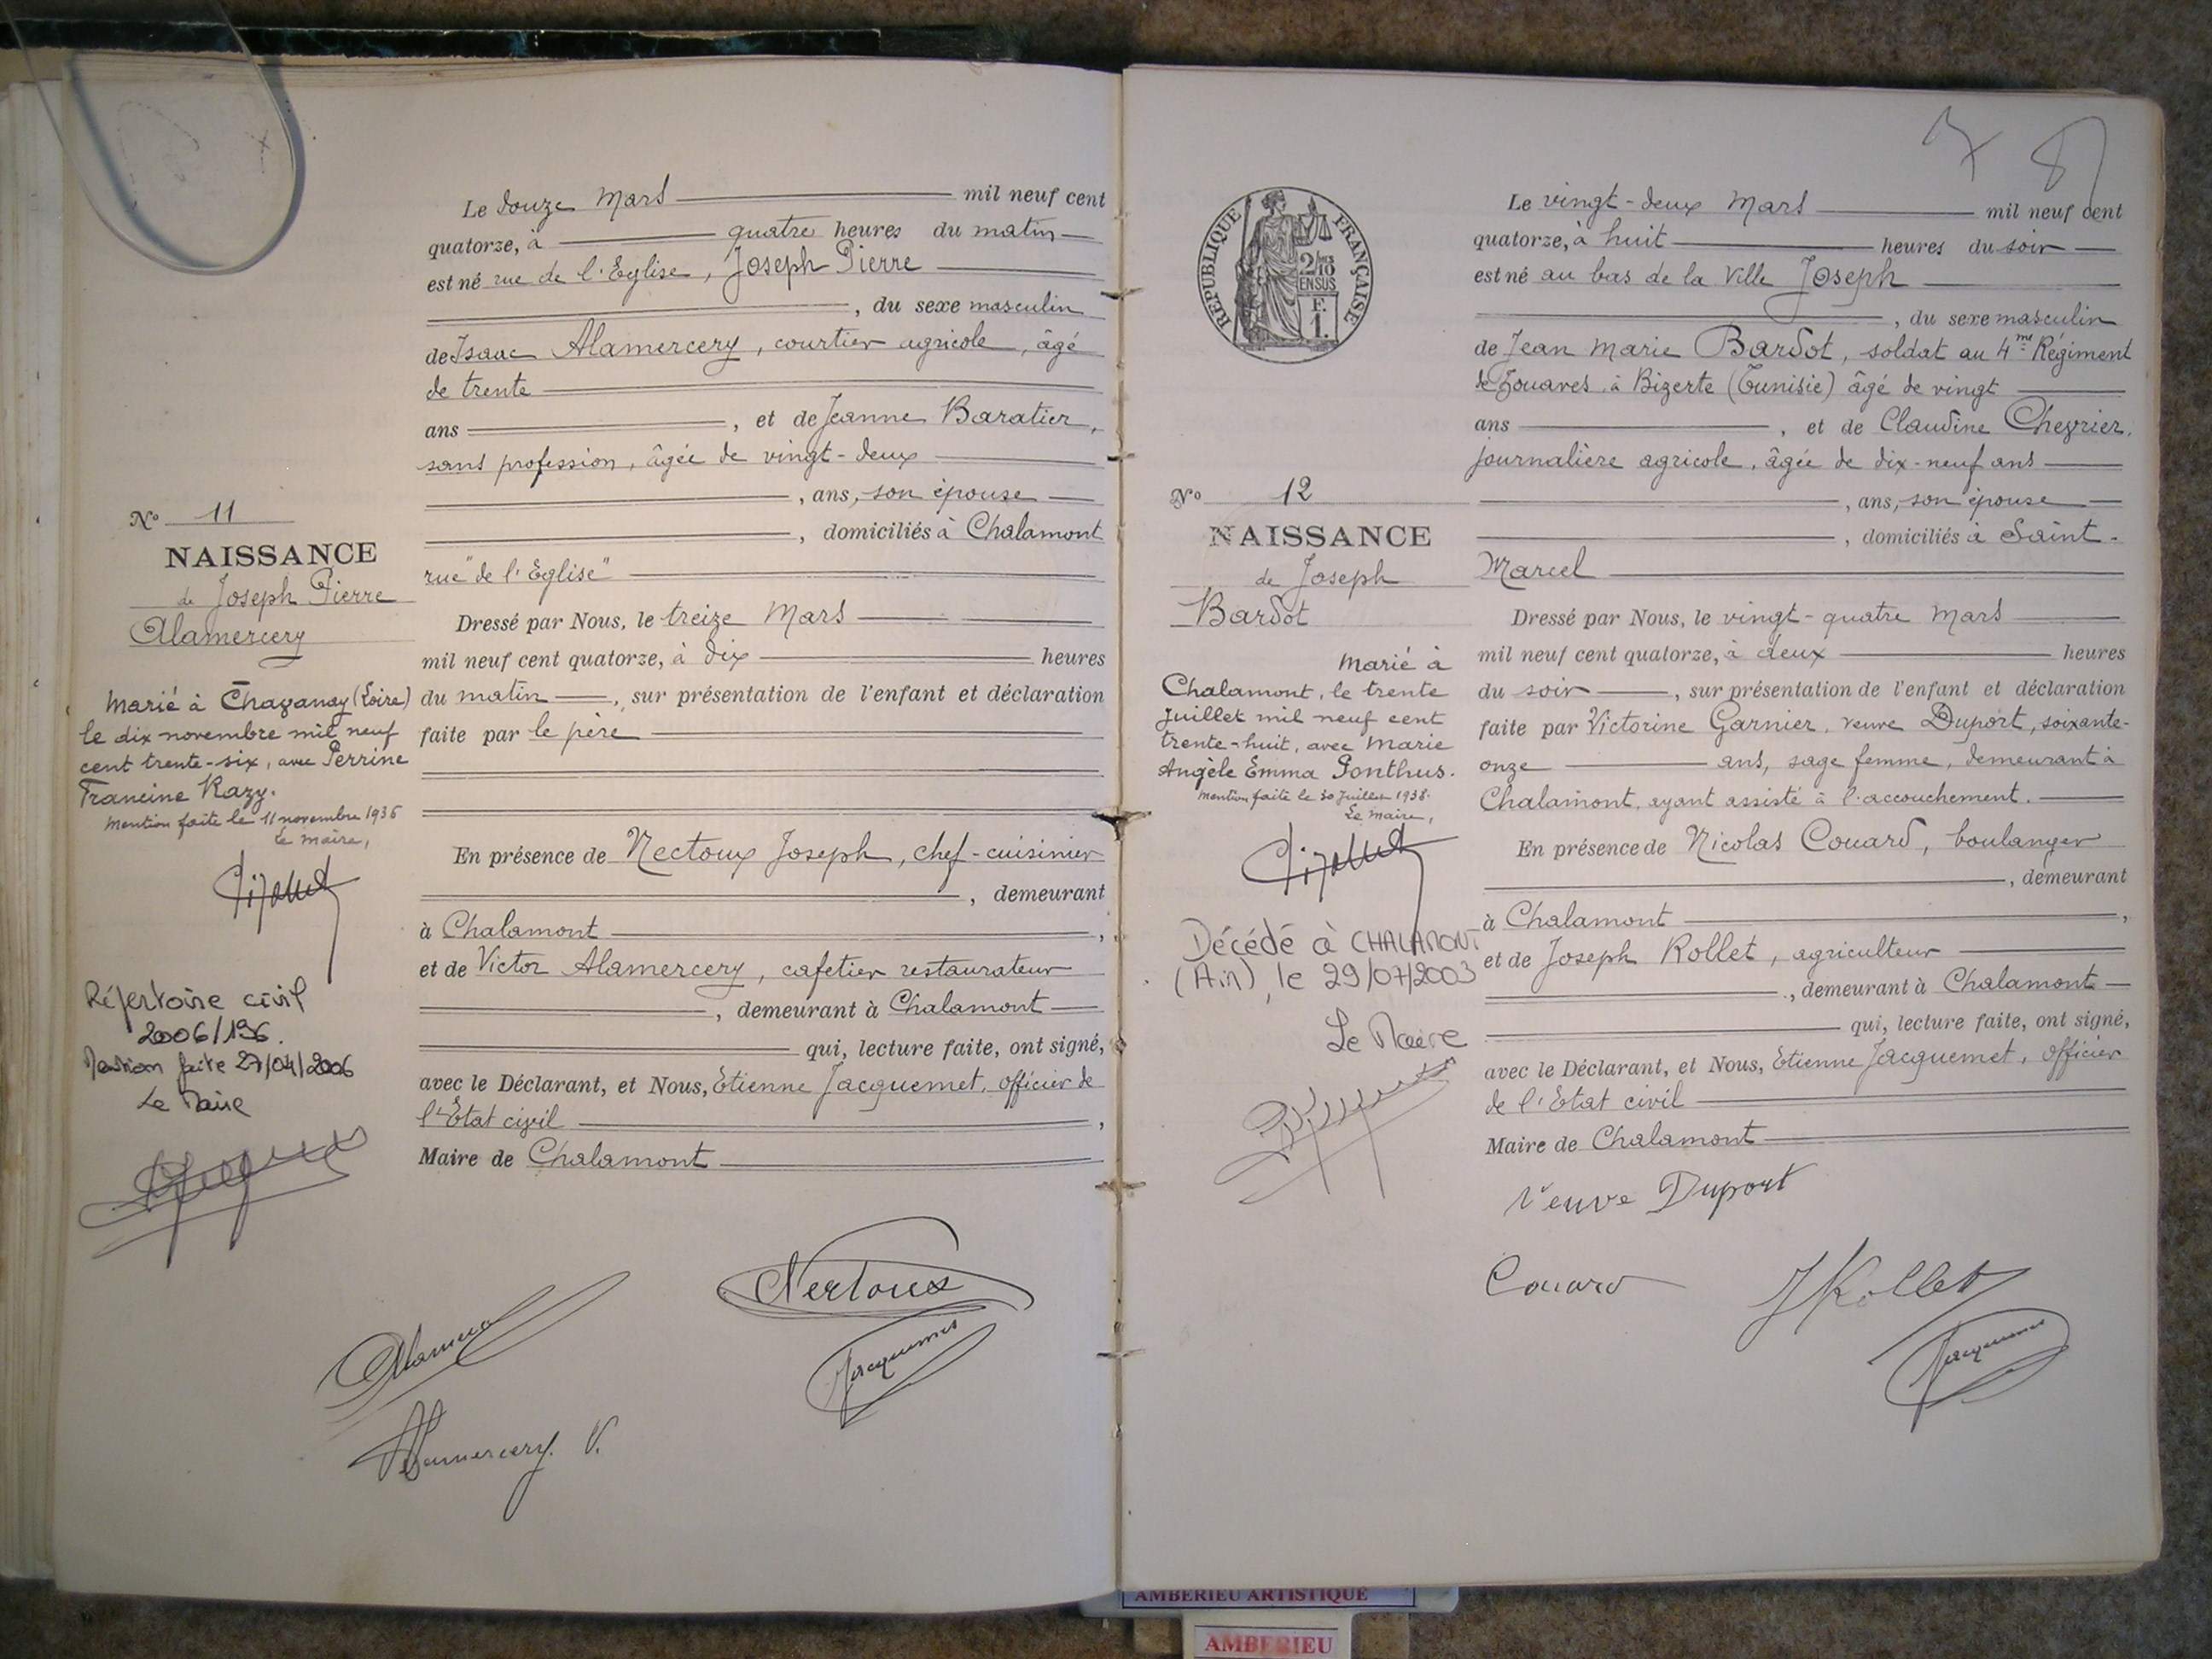 Le douze Mars mil neuf cent
quatorze, à quatre heures du matin
est né rue de l'Eglise, Joseph Pierre
, du sexe masculin
de Isaac Alamercery, courtier agricole, âgé
de trente
ans , et de Jeanne Baratier,
sans profession, âgée de vingt-deux
, ans, son épouse
, domiciliés à Chalamont
rue "de l'Eglise"
Dressé par Nous, le treize Mars
mil neuf cent quatorze, à dix heures
du matin , sur présentation de l'enfant et déclaration
faite par le père
En présence de Nectoux Joseph, chef-cuisinier
, demeurant
à Chalamont ,
et de Victor Alamercery, cafetier restaurateur
, demeurant à Chalamont
qui, lecture faite, ont signé,
avec le Déclarant, et Nous, Etienne Jacquemet, officier de
l'Etat civil ,
Maire de Chalamont
Nectoux
Jacquemet
Alamercery. V.
N° 11
NAISSANCE
de Joseph Pierre
Alamercery
Marié à Chavanay (Loire)
le dix novembre mil neuf
cent trente-six, avec Perrine
Francine Razy.
Mention faite le 11 novembre 1936
Le Maire,
Répertoire civil
2006/196.
Mention faite 27/04/2006
Le Maire
7 8
RÉPUBLIQUE FRANÇAISE
2/10
EN SUS
F.
1.
Le vingt-deux Mars mil neuf cent
quatorze, à huit heures du soir
est né au bas de la Ville Joseph
, du sexe masculin
de Jean Marie Bardot, soldat au 4me Régiment
de Zouaves à Bizerte (Tunisie) âgé de vingt
ans , et de Claudine Chevrier,
journalière agricole, âgée de dix-neuf ans
, ans, son épouse
, domiciliés à Saint-
Marcel
Dressé par Nous, le vingt-quatre Mars
mil neuf cent quatorze, à deux heures
du soir , sur présentation de l'enfant et déclaration
faite par Victorine Garnier, veuve Duport, soixante-
onze ans, sage femme, demeurant à
Chalamont, ayant assisté à l'accouchement.
En présence de Nicolas Couard, boulanger
, demeurant
à Chalamont ,
et de Joseph Rollet, agriculteur
, demeurant à Chalamont
qui, lecture faite, ont signé,
avec le Déclarant, et Nous, Etienne Jacquemet, officier
de l'Etat civil
Maire de Chalamont
Veuve Duport
Couard
J Rollet
Jacquemet
N° 12
NAISSANCE
de Joseph
Bardot
Marié à
Chalamont, le trente
Juillet mil neuf cent
trente-huit, avec Marie
Angèle Emma Ponthus.
Mention faite le 30 Juillet 1938.
Le Maire,
Décédé à CHALAMONT
(Ain), le 29/07/2003
Le Maire
AMBERIEU ARTISTIQUE
AMBERIEU